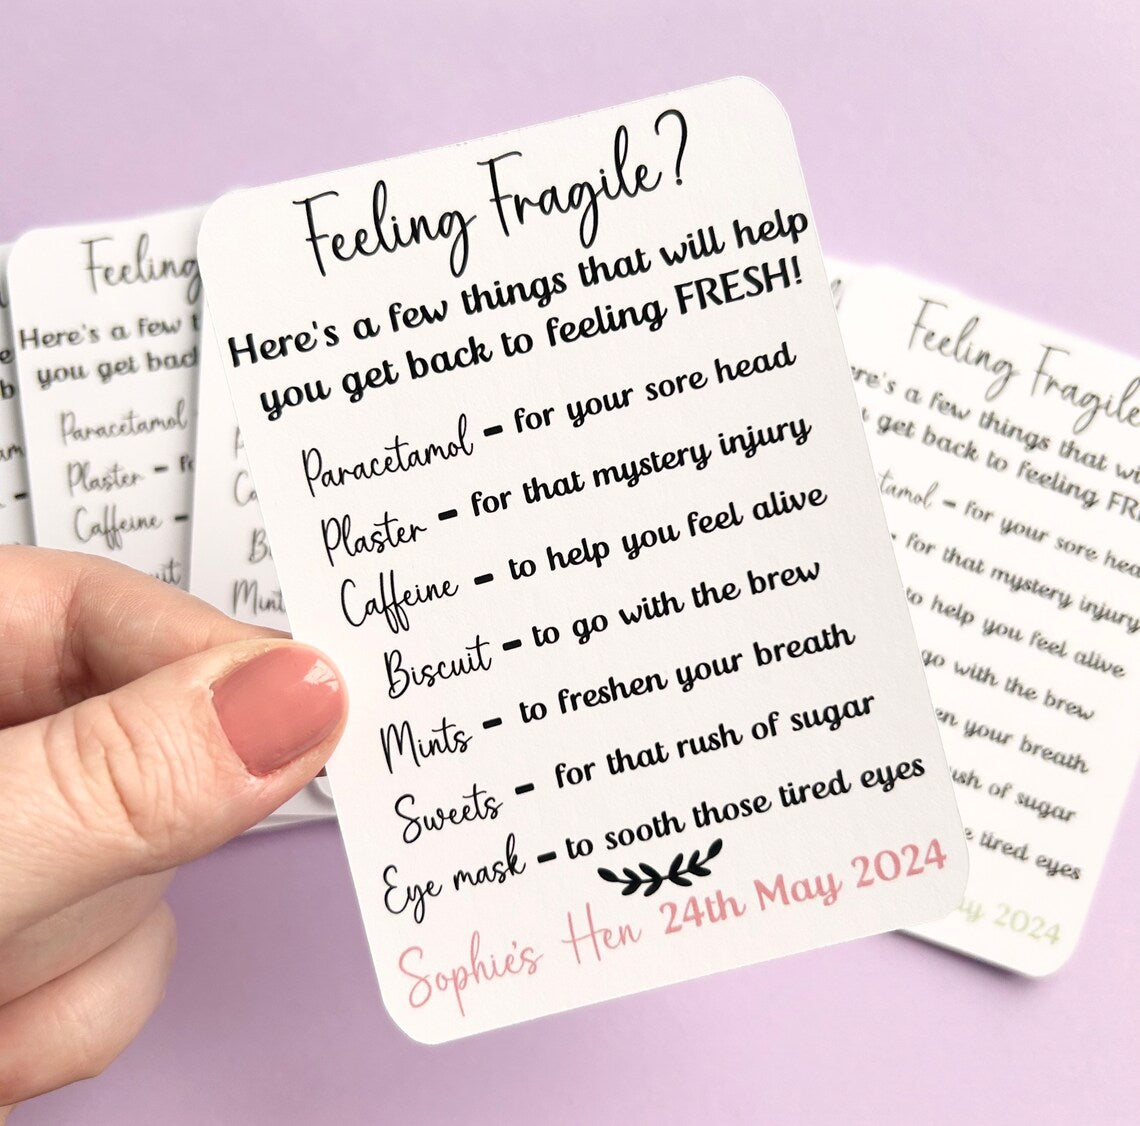 Feeling Fragile?
Here's a few things that will help
you get back to feeling FRESH!
Paracetamol - for your sore head
Plaster - for that mystery injury
Caffeine - to help you feel alive
Biscuit - to go with the brew
Mints - to freshen your breath
Sweets - for that rush of sugar
Eye mask - to sooth those tired eyes
Sophie's Hen 24th May 2024
Feeling
Here's a few
you get back
Paracetamol
Plaster -
Caffeine -
Feeling Fragile
a few things that
get back to feeling
- for your sore
for that mystery injury
to help you feel alive
go with the brew
your breath
of sugar
tired eyes
2024